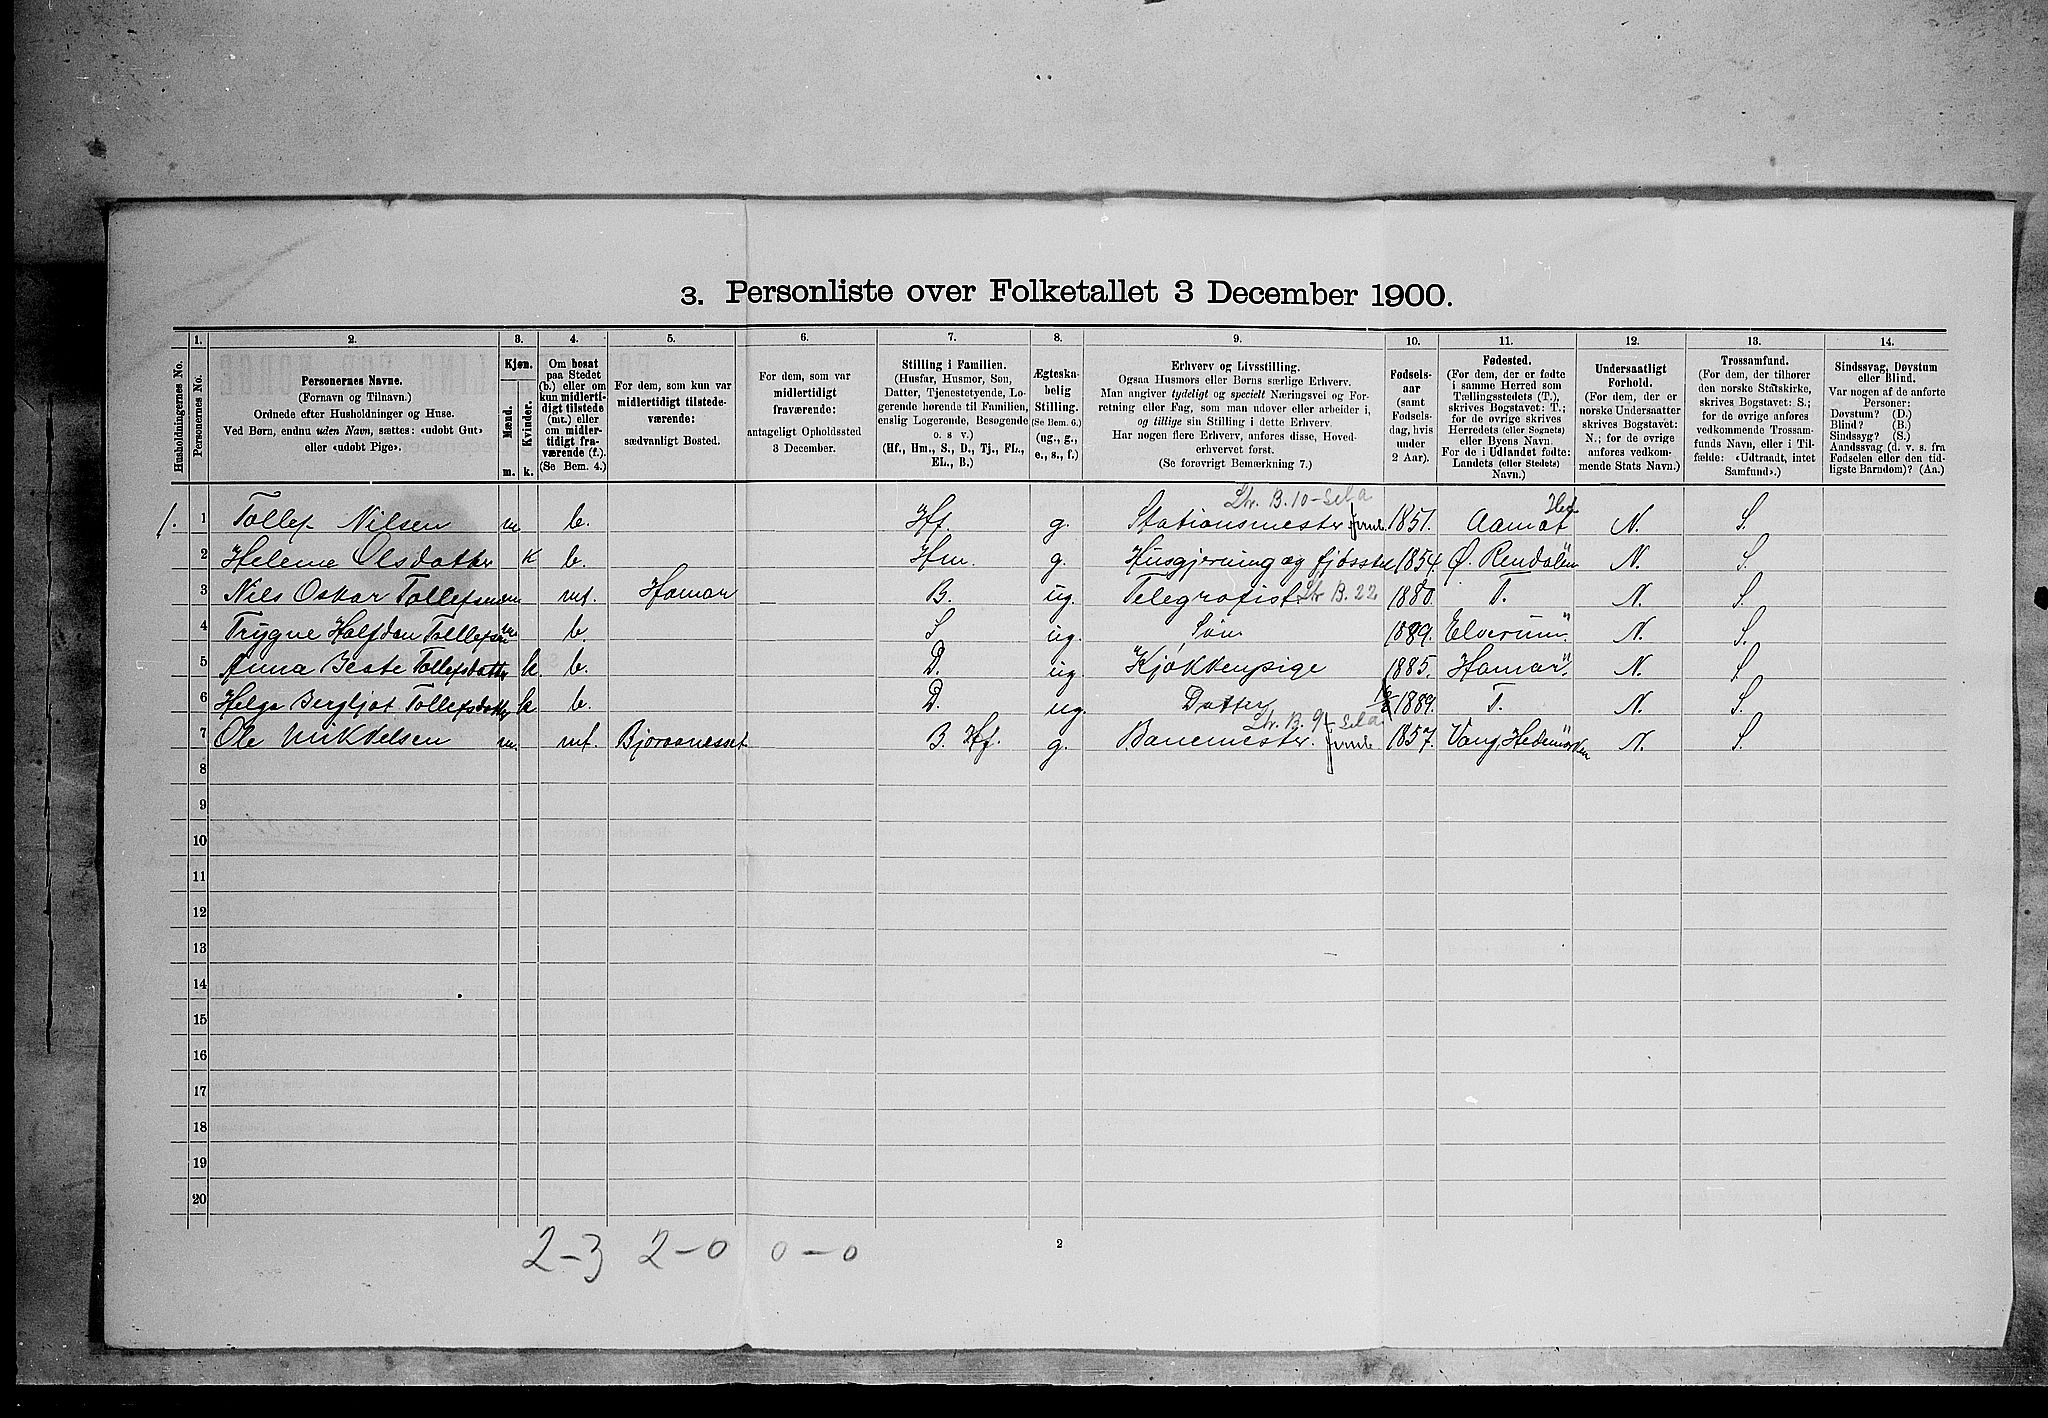 3. Personliste over Folketallet 3 December 1900.
Husholdningernes No.
1. Personernes No.
2. Personernes Navne. (Fornavn og Tilnavn.) Ordnede efter Husholdninger og Huse. Ved Børn, endnu uden Navn, sættes: «udøbt Gut» eller «udøbt Pige».
3. Kjøn. Mænd. m. Kvinder. k.
4. Om bosat paa Stedet (b.) eller om kun midlertidigt tilstede (mt.) eller om midlertidigt fraværende (f.). (Se Bem. 4.)
5. For dem, som kun var midlertidigt tilstedeværende: sædvanligt Bosted.
6. For dem, som var midlertidigt fraværende: antageligt Opholdssted 3 December.
7. Stilling i Familien. (Husfar, Husmor, Søn, Datter, Tjenestetyende, Logerende hørende til Familien, enslig Logerende, Besøgende o. s v.) (Hf., Hm., S., D., Tj., FL., EL., B.)
8. Ægteskabelig Stilling. (Se Bem. 6.) (ug., g., e., s., f.)
9. Erhverv og Livsstilling. Ogsaa Husmors eller Børns særlige Erhverv. Man angiver tydeligt og specielt Næringsvei og Forretning eller Fag, som man udøver eller arbeider i, og tillige sin Stilling i dette Erhverv. Har nogen flere Erhverv, anføres disse, Hovederhvervet først. (Se forøvrigt Bemærkning 7.)
10. Fødselsaar (samt Fødselsdag, hvis under 2 Aar).
11. Fødested. (For dem, der er fødte i samme Herred som Tællingsstedets (T.), skrives Bogstavet: T.; for de øvrige skrives Herredets (eller Sognets) eller Byens Navn. For de i Udlandet fødte: Landets (eller Stedets) Navn.)
12. Undersaatligt Forhold. (For dem, der er norske Undersaatter skrives Bogstavet: N.; for de øvrige anføres vedkommende Stats Navn.)
13. Trossamfund. (For dem, der tilhører den norske Statskirke, skrives Bogstavet: S.; for de øvrige anføres vedkommende Trossamfunds Navn, eller i Tilfælde: «Udtraadt, intet Samfund».)
14. Sindssvag, Døvstum eller Blind. Var nogen af de anførte Personer: Døvstum? (D.) Blind? (B.) Sindssyg? (S.) Aandssvag (d. v. s. fra Fødselen eller den tidligste Barndom)? (Aa.)
Str. B. 10 - sela
1. 1 Tollef Nilsen m b. Hf. g. Stationsmester Jernb 1851. Aamot Hed. N. S.
2 Helene Olsdatter k b. Hm. g. Husgjerning og fjøsstel 1854 Ø. Rendalen " N. S.
3 Nils Oskar Tollefsen m mt. Hamar B. ug. Telegrafist. Str B. 22 1880. T. N. S.
4 Trygve Halfdan Tollefsen m b. S ug. Søn 1889. Elverum " N. S.
5 Anna Beate Tollefsdatter k. b. D. ug. Kjøkkenpige 1885. Hamar " N. S
6 Helga Bergljot Tollefsdatter k b. D. ug. Datter 1889. T. N. S.
Str. B. 9 - sela
7 Ole Mikkelsen m. mt. Bjøraanesset B. Hf. g. Banemester. Jernb 1857. Vang, Hedemarken N. S.
8
9
10
11
12
13
14
15
16
17
18
19
20
2-3 2-0 0-0
2